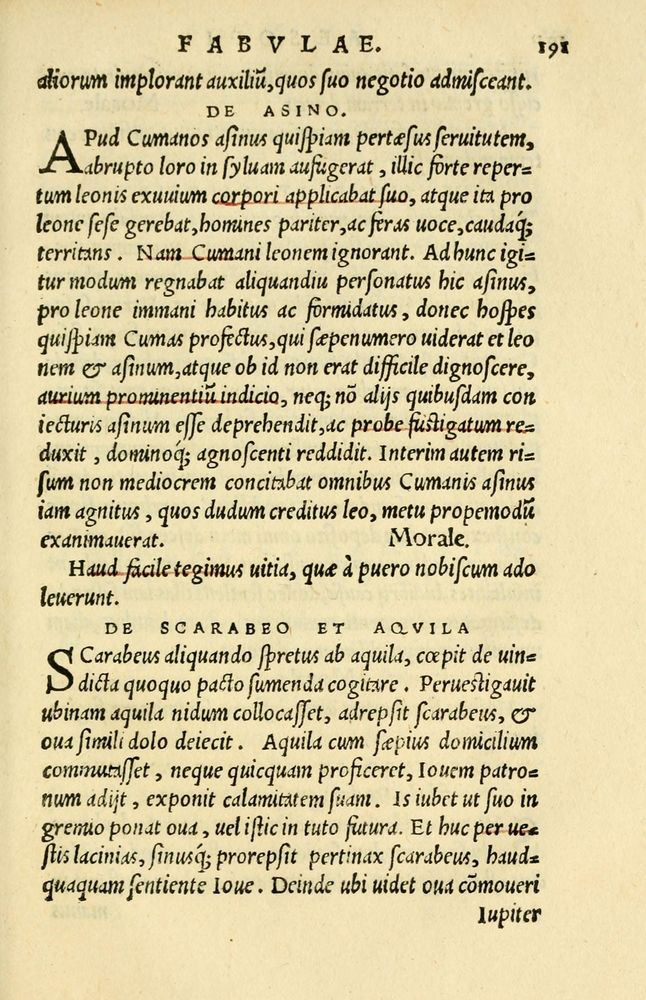 FABVLAE. 191
aliorum implorant auxiliũ, quos ſuo negotio admiſceant.
DE ASINO.
APud Cumanos aſinus quiſpiam pertæſus ſeruitutem,
abrupto loro in ſyluam aufugerat, illic forte reper=
tum leonis exuuium corpori applicabat ſuo, atque ita pro
leone ſeſe gerebat, homines pariter, ac feras uoce, caudaq́;
territans. Nam Cumani leonem ignorant. Ad hunc igi=
tur modum regnabat aliquandiu perſonatus hic aſinus,
pro leone immani habitus ac formidatus, donec hoſpes
quiſpiam Cumas profectus, qui ſæpenumero uiderat et leo
nem & aſinum, atque ob id non erat difficile dignoſcere,
aurium prominentiũ indicio, neq; nõ alijs quibuſdam con
iecturis aſinum eſſe deprehendit, ac probe fuſtigatum re=
duxit, dominoq́; agnoſcenti reddidit. Interim autem ri=
ſum non mediocrem concitabat omnibus Cumanis aſinus
iam agnitus, quos dudum creditus leo, metu propemodũ
exanimauerat. Morale.
Haud facile tegimus uitia, quæ à puero nobiſcum ado
leuerunt.
DE SCARABEO ET AQVILA
SCarabeus aliquando ſpretus ab aquila, cœpit de uin=
dicta quoquo pacto ſumenda cogitare. Perueſtigauit
ubinam aquila nidum collocaſſet, adrepſit ſcarabeus, &
oua ſimili dolo deiecit. Aquila cum ſæpius domicilium
commutaſſet, neque quicquam proficeret, Iouem patro=
num adijt, exponit calamitatem ſuam. Is iubet ut ſuo in
gremio ponat oua, uel iſtic in tuto futura. Et huc per ue=
ſtis lacinias, ſinusq́; prorepſit pertinax ſcarabeus, haud=
quaquam ſentiente Ioue. Deinde ubi uidet oua cõmoueri
Iupiter